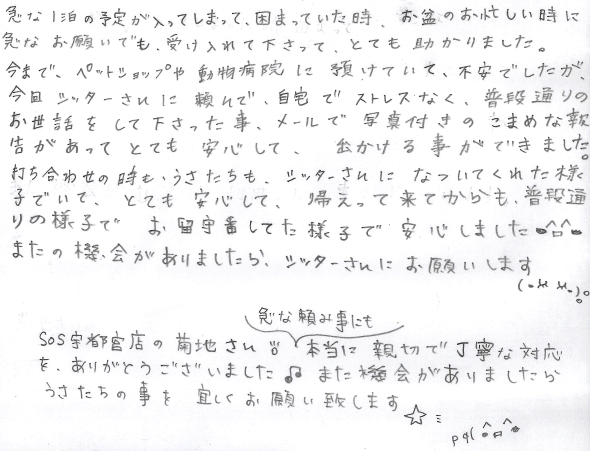 急な1泊の予定が入ってしまって、困まっていた時、お盆のお忙しい時に
急なお願いでも、受け入れて下さって、とても助かりました。
今まで、ペットショップや動物病院に預けていて、不安でしたが、
今回シッターさんに頼んで、自宅でストレスなく、普段通りの
お世話をして下さった事、メールで写真付きのこまめな報
告があってとても安心して、出かける事ができました。
打ち合わせの時も、うさたちも、シッターさんになついてくれた様
子でいて、とても安心して、帰えって来てからも、普段通
りの様子でお留守番してた様子で安心しました
またの機会がありましたら、シッターさんにお願いします
急な頼み事にも
SOS宇都宮店の菊地さん 本当に親切で丁寧な対応
を、ありがとうございました♫また機会がありましたら
うさたちの事を宜しくお願い致します☆